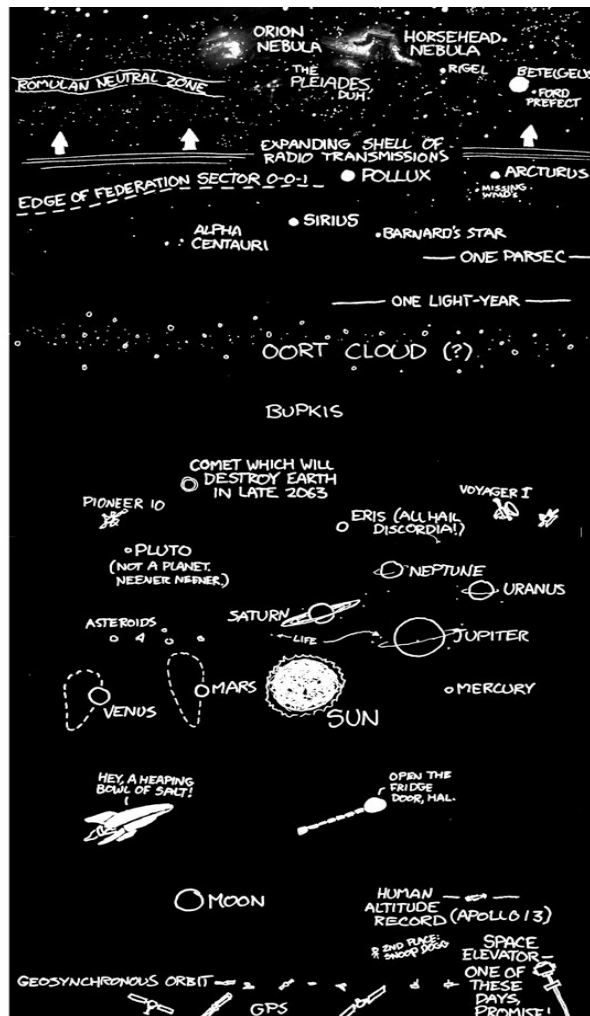 ORION
NEBULA
HORSEHEAD
NEBULA
THE
PLEIADES,
DUH.
RIGEL
BETELGEUS
FORD
PREFECT
ROMULAN NEUTRAL ZONE
EXPANDING SHELL OF
RADIO TRANSMISSIONS
EDGE OF FEDERATION SECTOR 0-0-1
POLLUX
ARCTURUS
MISSING
WMD'S
SIRIUS
ALPHA
CENTAURI
BARNARD'S STAR
ONE PARSEC
ONE LIGHT-YEAR
OORT CLOUD (?)
BUPKIS
COMET WHICH WILL
DESTROY EARTH
IN LATE 2063
PIONEER 10
VOYAGER I
ERIS (ALL HAIL
DISCORDIA!)
PLUTO
(NOT A PLANET.
NEENER NEENER.)
NEPTUNE
URANUS
SATURN
ASTEROIDS
LIFE
JUPITER
VENUS
MARS
SUN
MERCURY
HEY, A HEAPING
BOWL OF SALT!
OPEN THE
FRIDGE
DOOR, HAL.
MOON
HUMAN
ALTITUDE
RECORD (APOLLO 13)
2ND PLACE:
SNOOP DOGG
SPACE
ELEVATOR
ONE OF
THESE
DAYS,
PROMISE!
GEOSYNCHRONOUS ORBIT
GPS